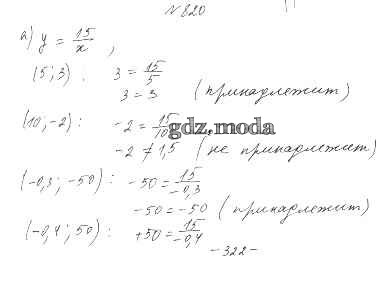 № 820
а) y = 15/x ,
(5; 3) : 3 = 15/5
3 = 3 (принадлежит)
(10; -2) : -2 = 15/10
gdz.moda
-2 ≠ 1,5 (не принадлежит)
(-0,3; -50) : -50 = 15/-0,3
-50 = -50 (принадлежит)
(-0,4; 50) : +50 = 15/-0,4
-322-